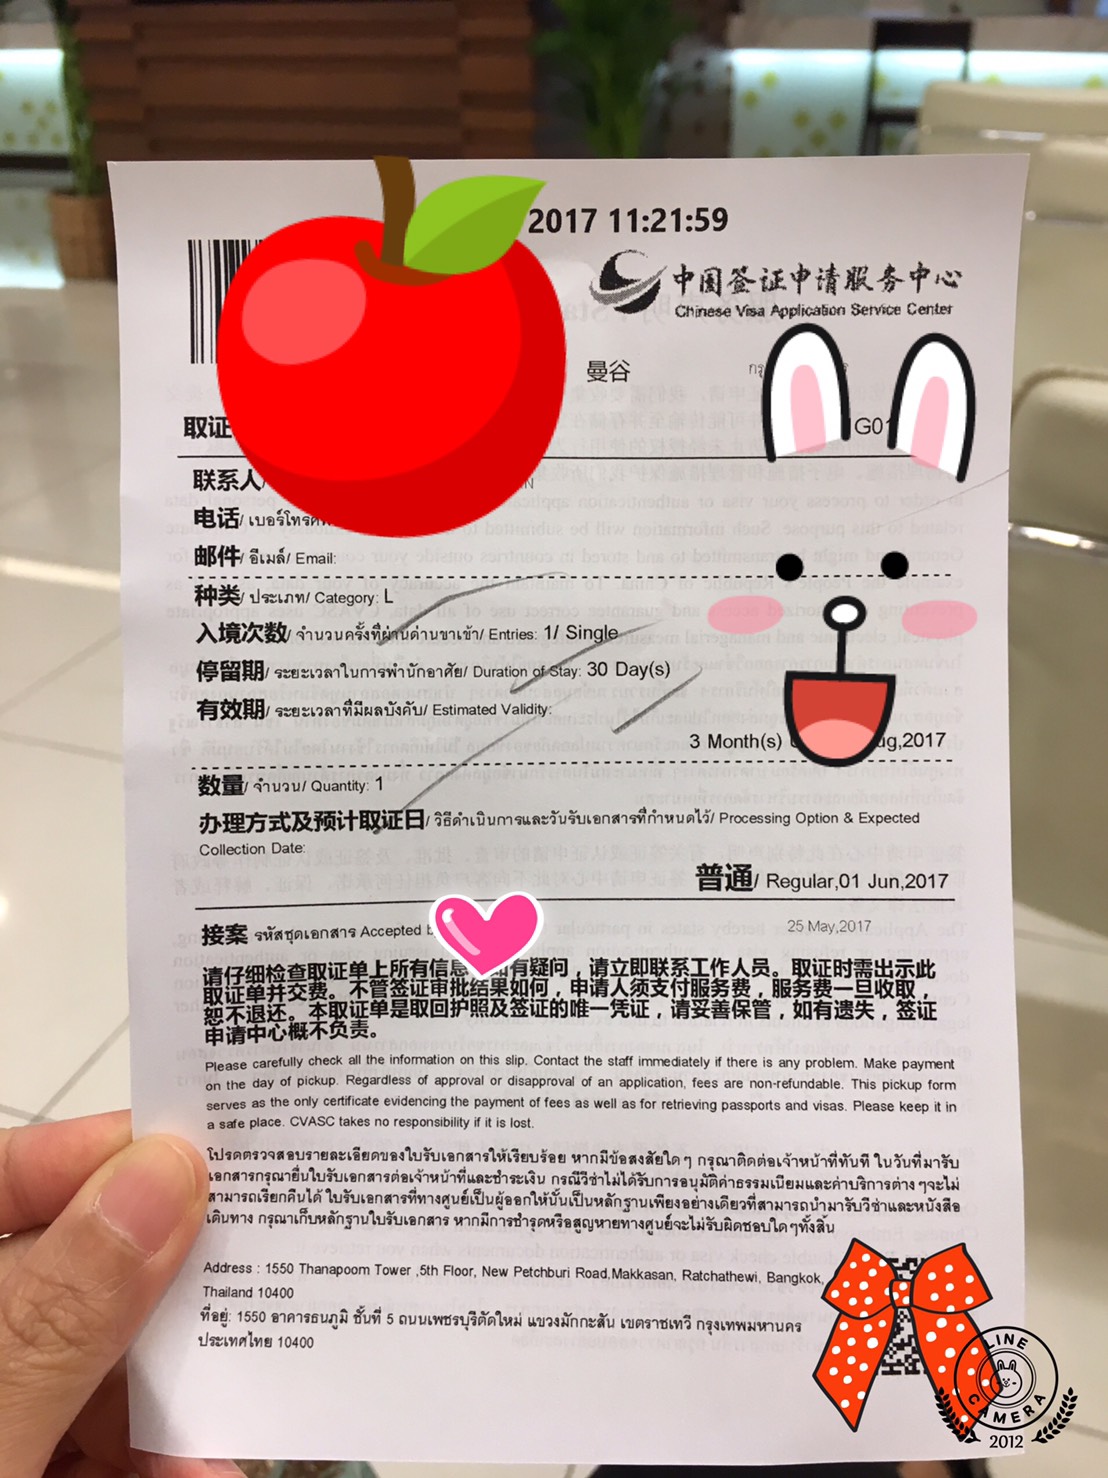 2017 11:21:59
中国签证申请服务中心
Chinese Visa Application Service Center
曼谷
取证
联系人/
电话/ เบอร์โทรศัพ
邮件/ อีเมล์/ Email:
种类/ ประเภท/ Category: L
入境次数/ จำนวนครั้งที่ผ่านด่านขาเข้า/ Entries: 1/ Single
停留期/ ระยะเวลาในการพำนักอาศัย/ Duration of Stay: 30 Day(s)
有效期/ ระยะเวลาที่มีผลบังคับ/ Estimated Validity:
3 Month(s) ug,2017
数量/ จำนวน/ Quantity: 1
办理方式及预计取证日/ วิธีดำเนินการและวันรับเอกสารที่กำหนดไว้/ Processing Option & Expected
Collection Date:
普通/ Regular,01 Jun,2017
接案 รหัสชุดเอกสาร Accepted 25 May,2017
请仔细检查取证单上所有信息 如有疑问，请立即联系工作人员。取证时需出示此
取证单并交费。不管签证审批结果如何，申请人须支付服务费，服务费一旦收取，
恕不退还。本取证单是取回护照及签证的唯一凭证，请妥善保管，如有遗失，签证
申请中心概不负责。
Please carefully check all the information on this slip. Contact the staff immediately if there is any problem. Make payment
on the day of pickup. Regardless of approval or disapproval of an application, fees are non-refundable. This pickup form
serves as the only certificate evidencing the payment of fees as well as for retrieving passports and visas. Please keep it in
a safe place. CVASC takes no responsibility if it is lost.
โปรดตรวจสอบรายละเอียดของใบรับเอกสารให้เรียบร้อย หากมีข้อสงสัยใด ๆ กรุณาติดต่อเจ้าหน้าที่ทันที ในวันที่มารับ
เอกสารกรุณายื่นใบรับเอกสารต่อเจ้าหน้าที่และชำระเงิน กรณีวีซ่าไม่ได้รับการอนุมัติค่าธรรมเนียมและค่าบริการต่าง ๆจะไม่
สามารถเรียกคืนได้ ใบรับเอกสารที่ทางศูนย์เป็นผู้ออกให้นั้นเป็นหลักฐานเพียงอย่างเดียวที่สามารถนำมารับวีซ่าและหนังสือ
เดินทาง กรุณาเก็บหลักฐานใบรับเอกสาร หากมีการชำรุดหรือสูญหายทางศูนย์จะไม่รับผิดชอบใดๆทั้งสิ้น
Address : 1550 Thanapoom Tower ,5th Floor, New Petchburi Road,Makkasan, Ratchathewi, Bangkok,
Thailand 10400
ที่อยู่: 1550 อาคารธนภูมิ ชั้นที่ 5 ถนนเพชรบุรีตัดใหม่ แขวงมักกะสัน เขตราชเทวี กรุงเทพมหานคร
ประเทศไทย 10400
LINE
CAMERA
2012